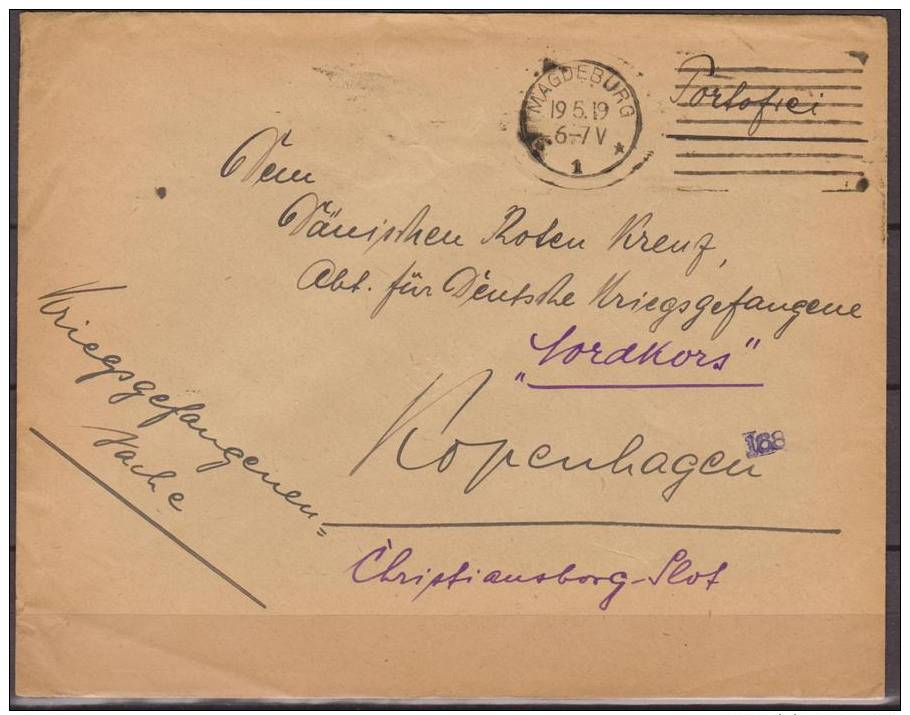 MAGDEBURG
19.5.19
6-7V
* 1 *
Portofrei
Dem
Dänischen Roten Kreuz,
Abt. für Deutsche Kriegsgefangene
"Nordkors"
Kopenhagen
168
Christiansborg-Slot
Kriegsgefangenen=
Sache